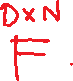 DXN
F.